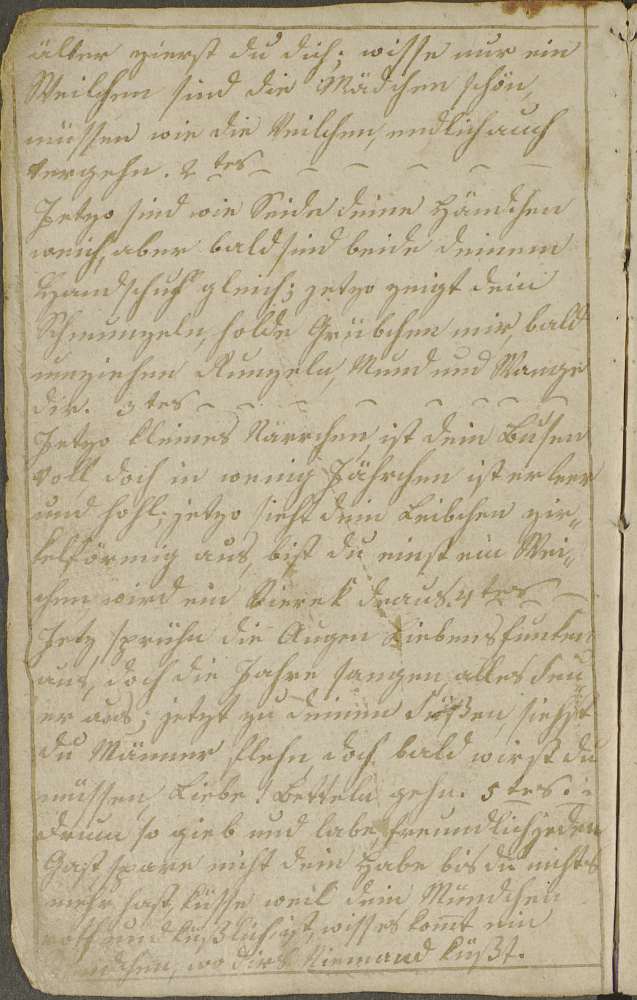 älter zierst du dich; wisse nur ein
Weilchen sind die Mädchen schön,
müssen wie die Veilchen, endlich auch
vergehn. 2 tes
Jetzo sind wie Seide deine Händchen
weich, aber bald sind beide deinem
Handschuh gleich; jetzo zeigt dein
Schmunzeln, holde Grübchen mir, bald
umziehen Runzeln, Mund und Wange
dir. 3 tes
Jetzo kleines Närrchen, ist dein Busen
voll, doch in wenig Jährchen ist er leer
und hohl; jetzo sieht dein Leibchen zir„
kelförmig aus, bist du einst ein Wei„
chen wird ein Vierek draus. 4 tes
Jetz sprühn die Augen Liebensfunken
aus, doch die Jahre saugen alles Feu„
er aus; jetzt zu deinen Füßen, siehst
du Männer flehn doch bald wirst du
müssen, Liebe! Betteln gehn. 5 tes.
Drum so gieb und labe, freundlich jeden
Gast spare nicht dein Habe bis du nichts
mehr hast, küsse weil dein Mündchen
roth und küßlich ist, wiss es komt ein
wo dich Niemand küßt.